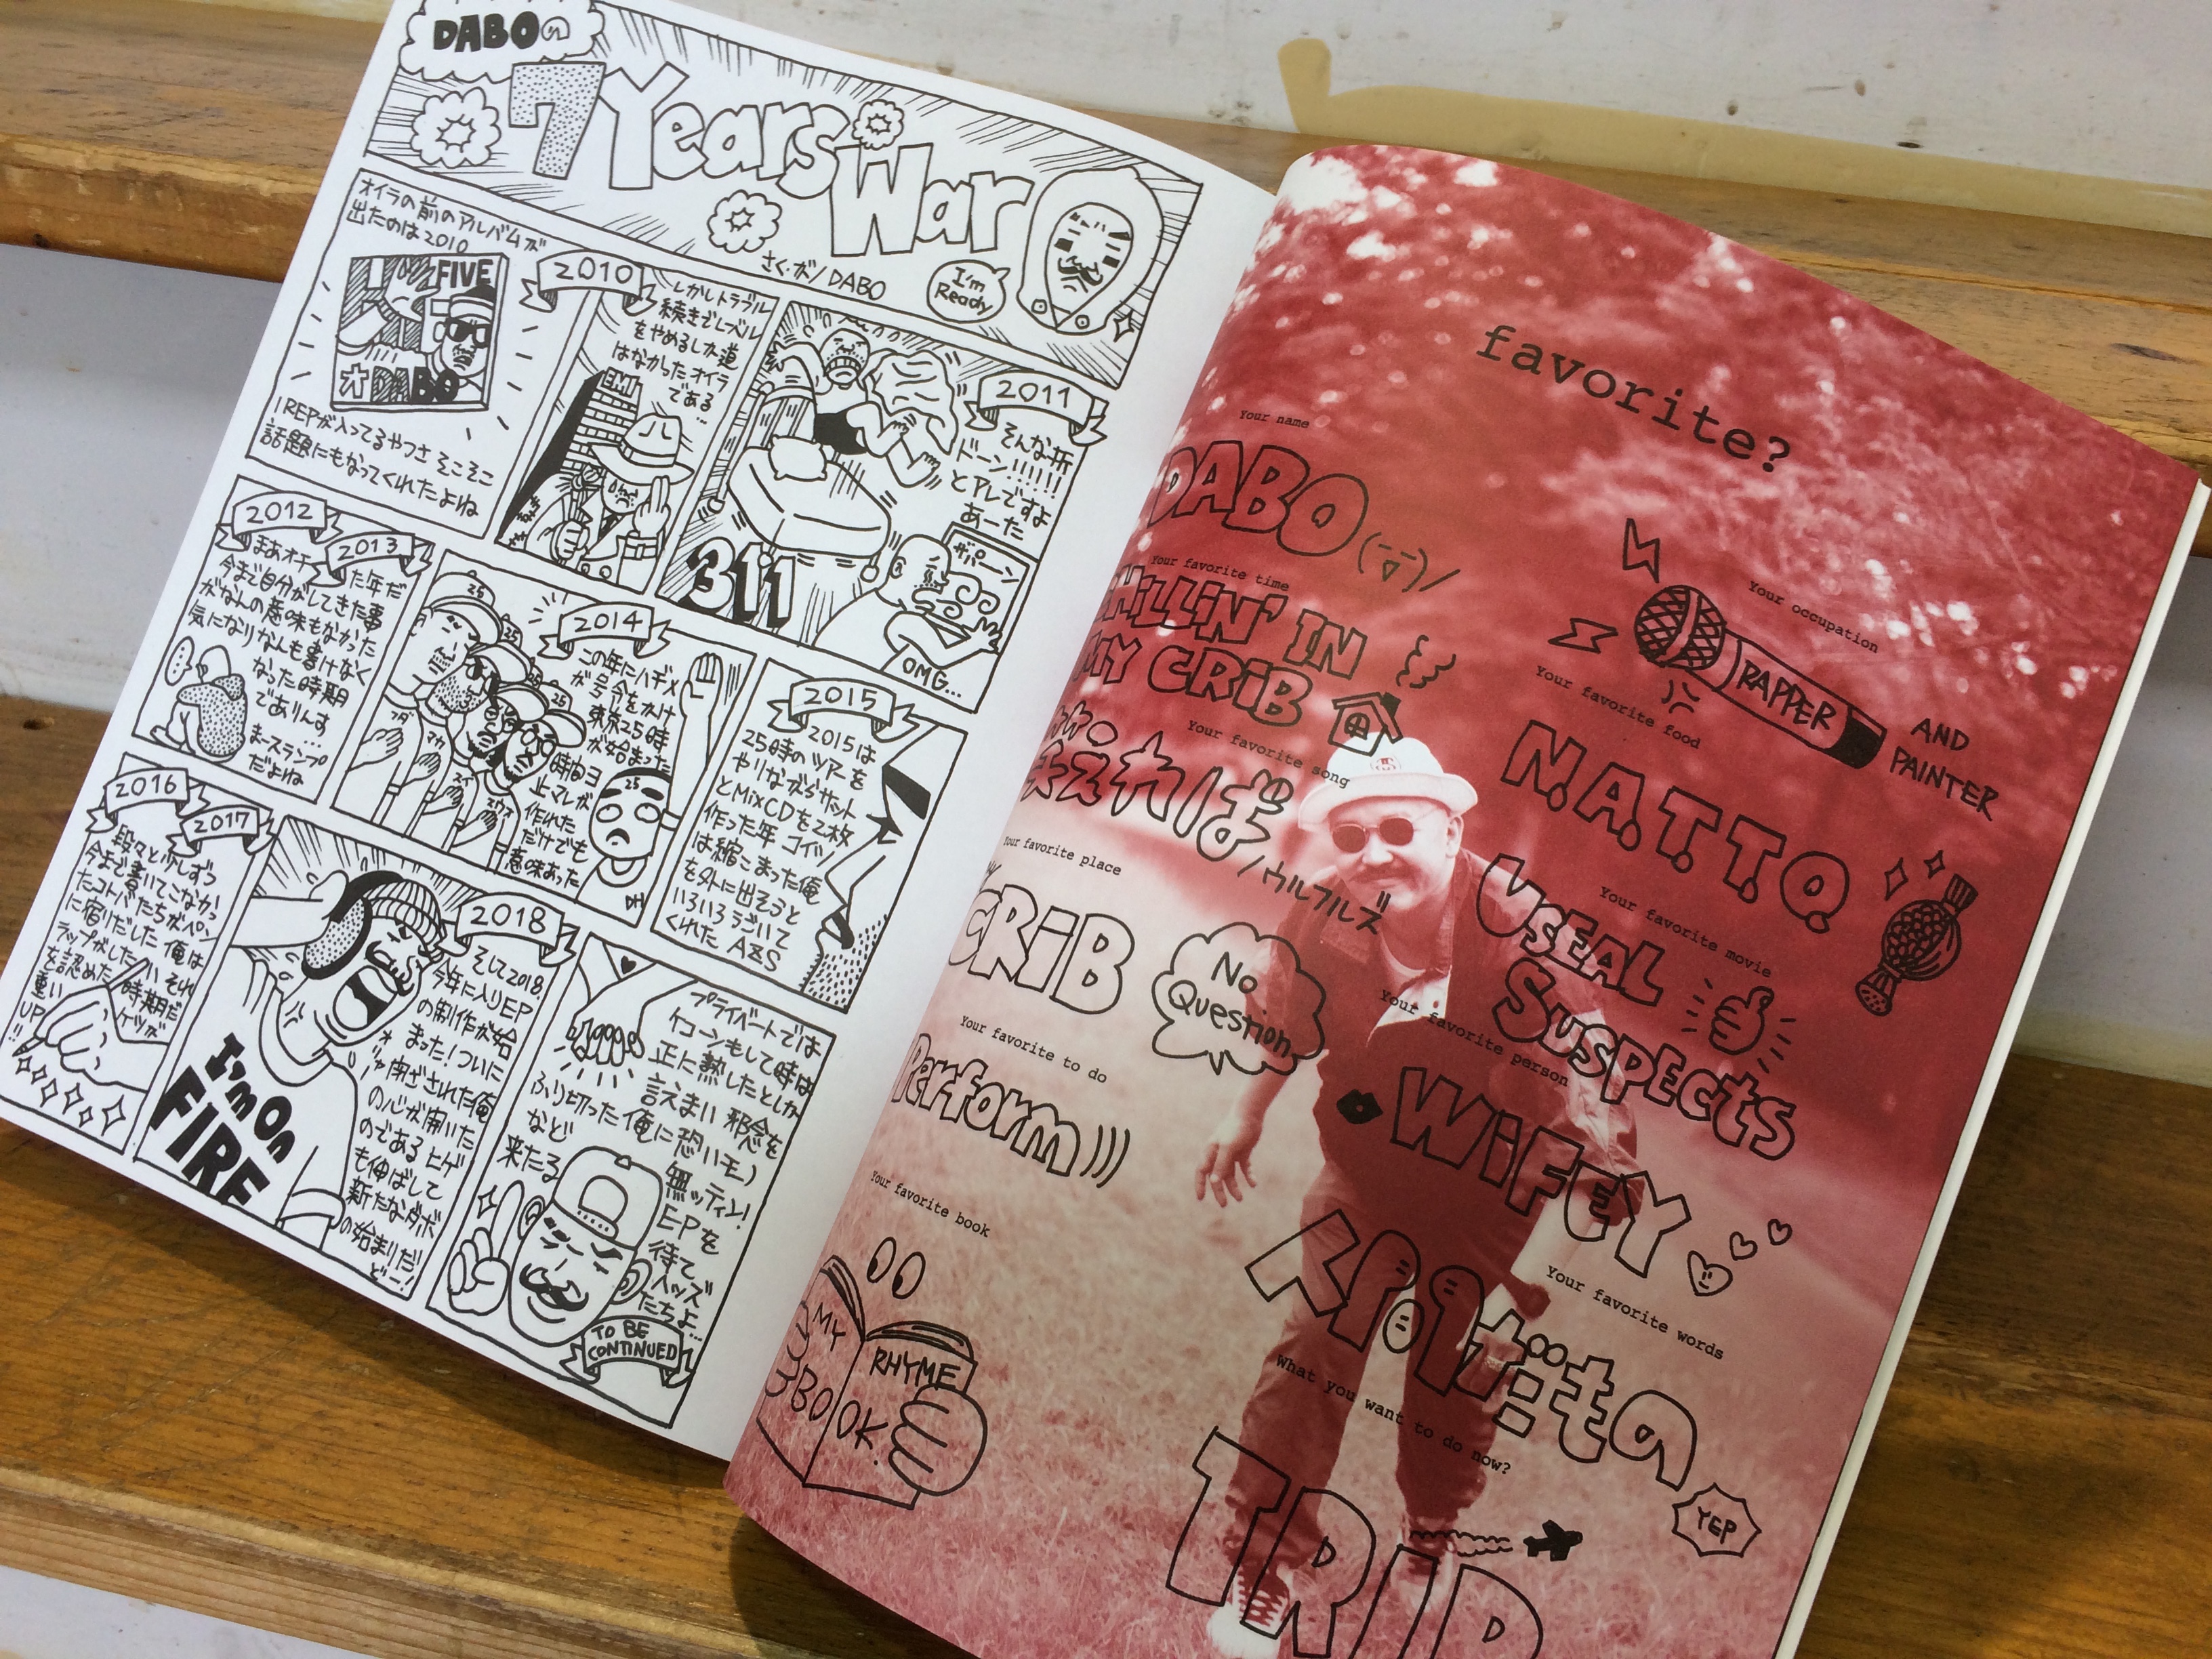 DABOの
7 Years War
さく・が/DABO
I'm
Ready
オイラの前のアルバムが
出たのは2010
FIVE
DABO
I REPが入ってるやつさ そこそこ
話題にもなってくれたよね
2010
しかしトラブル
続きでレーベル
をやめるしか道
はなかったオイラ
である…
EMI
2011
そんな折
ドーン!!!!!!
とアレですよ
あーた
311
ザパーン
OMG...
2012
2013
まあオチ
た年だ
今まで自分がしてきた事
がなんの意味もなかった
気になりなんも書けなく
なった時期
でありんす
…
まースランプ
だよね
2014
この年にハヂメ
が号令をかけ
東京25時
が始まった
時間ヨ
止マレが
作れた
だけでも
意味あった
25
25
25
25
25
DH
2015
2015は
25時のツアーを
やりながらサットン
とMixCDを2枚
作った年 コイツ
は縮こまった俺
を外に出そうと
いろいろうごいて
くれた
2016
2017
段々と少しずつ
今まで書いてこなかっ
たコトバたちがペン
に宿りだした 俺は
ラップがしたい それ
を認めた時期だ
重い
ケツが
UP
!!
2018
そして2018.
今年に入りEP
の制作が始
まった!ついに
閉ざされた俺
の心が開いた
のである ヒゲ
も伸ばして
新たなダボ
の始まりだ!
どー!
I'm On
FIRE
プライベートでは
ケコーンもして時は
正に熟したとしか
言えまい 邪念を
ふり切った俺に恐いモノ
など
無ッティン!
来たる
EPを
待て
人ッズ
たちよ…
TO BE
CONTINUED
favorite?
Your name
DABO
Your occupation
RAPPER
AND
PAINTER
Your favorite time
CHILLIN' IN
MY CRIB
Your favorite food
N.A.T.T.O
Your favorite song
笑えれば
/ウルフルズ
Your favorite movie
USEAL
SUSPECTS
Your favorite place
MY
CRIB
No
Question
Your favorite person
WIFEY
Your favorite to do
Perform)))
Your favorite words
YEP
Your favorite book
MY
RHYME
BOOK.
What you want to do now?
TRIP